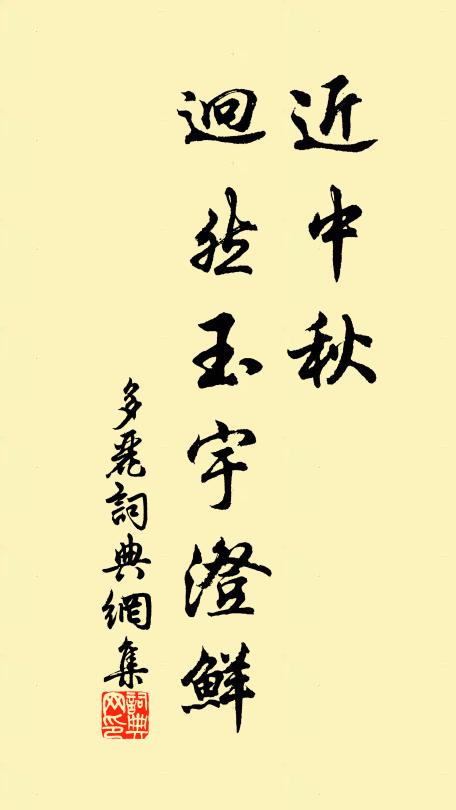 近中秋
迥然玉宇澄鮮
多麗詞典網集
詞典網印